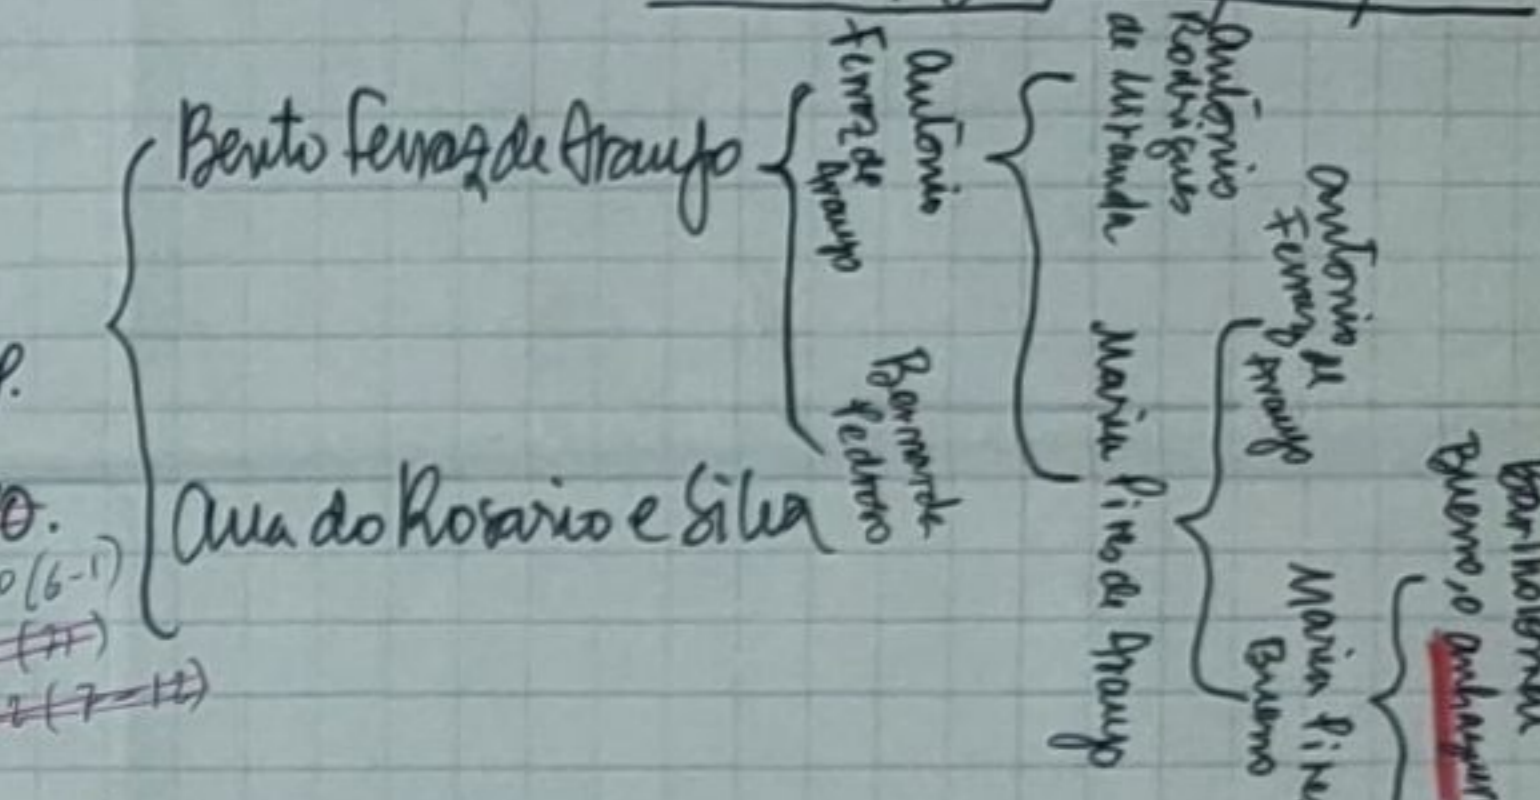 Bento Ferraz de Araujo
Ana do Rosario e Silva
Antônio
Ferraz de
Araujo
Bernarda
Pedroso
Antônio
Rodrigues
de Miranda
Maria Pires de Araujo
Antônio
Ferraz de
Araujo
Maria Pire
Bueno
Bueno, o anhaguer
P.
O.
(6-1)
(7-12)